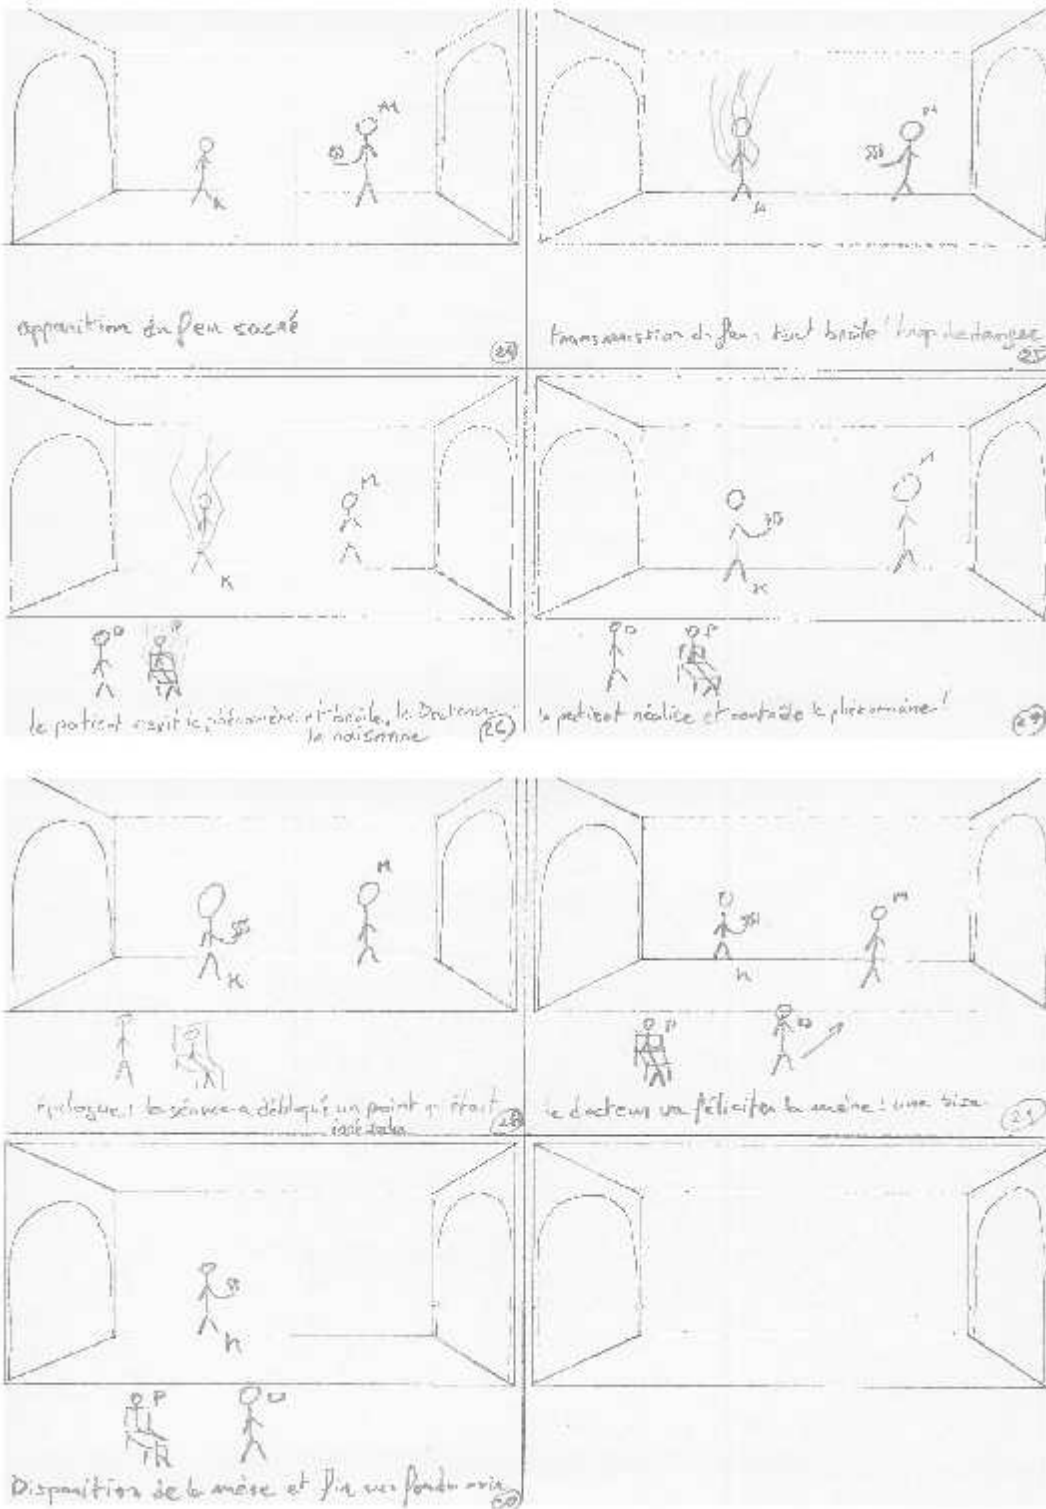 M
K
apparition du feu sacré
24
M
K
transmission du feu : tout brûle ! trop de danger
25
M
K
D P
le patient le phénomène et brûle, le Docteur
le raisonne
26
M
K
D P
le patient réalise et contrôle le phénomène !
27
M
K
épilogue : la séance a débloqué un point qui était
28
M
K
P D
le docteur va féliciter la mère : une bise
29
K
P D
Disparition de la mère et fin sur fondu noir
30